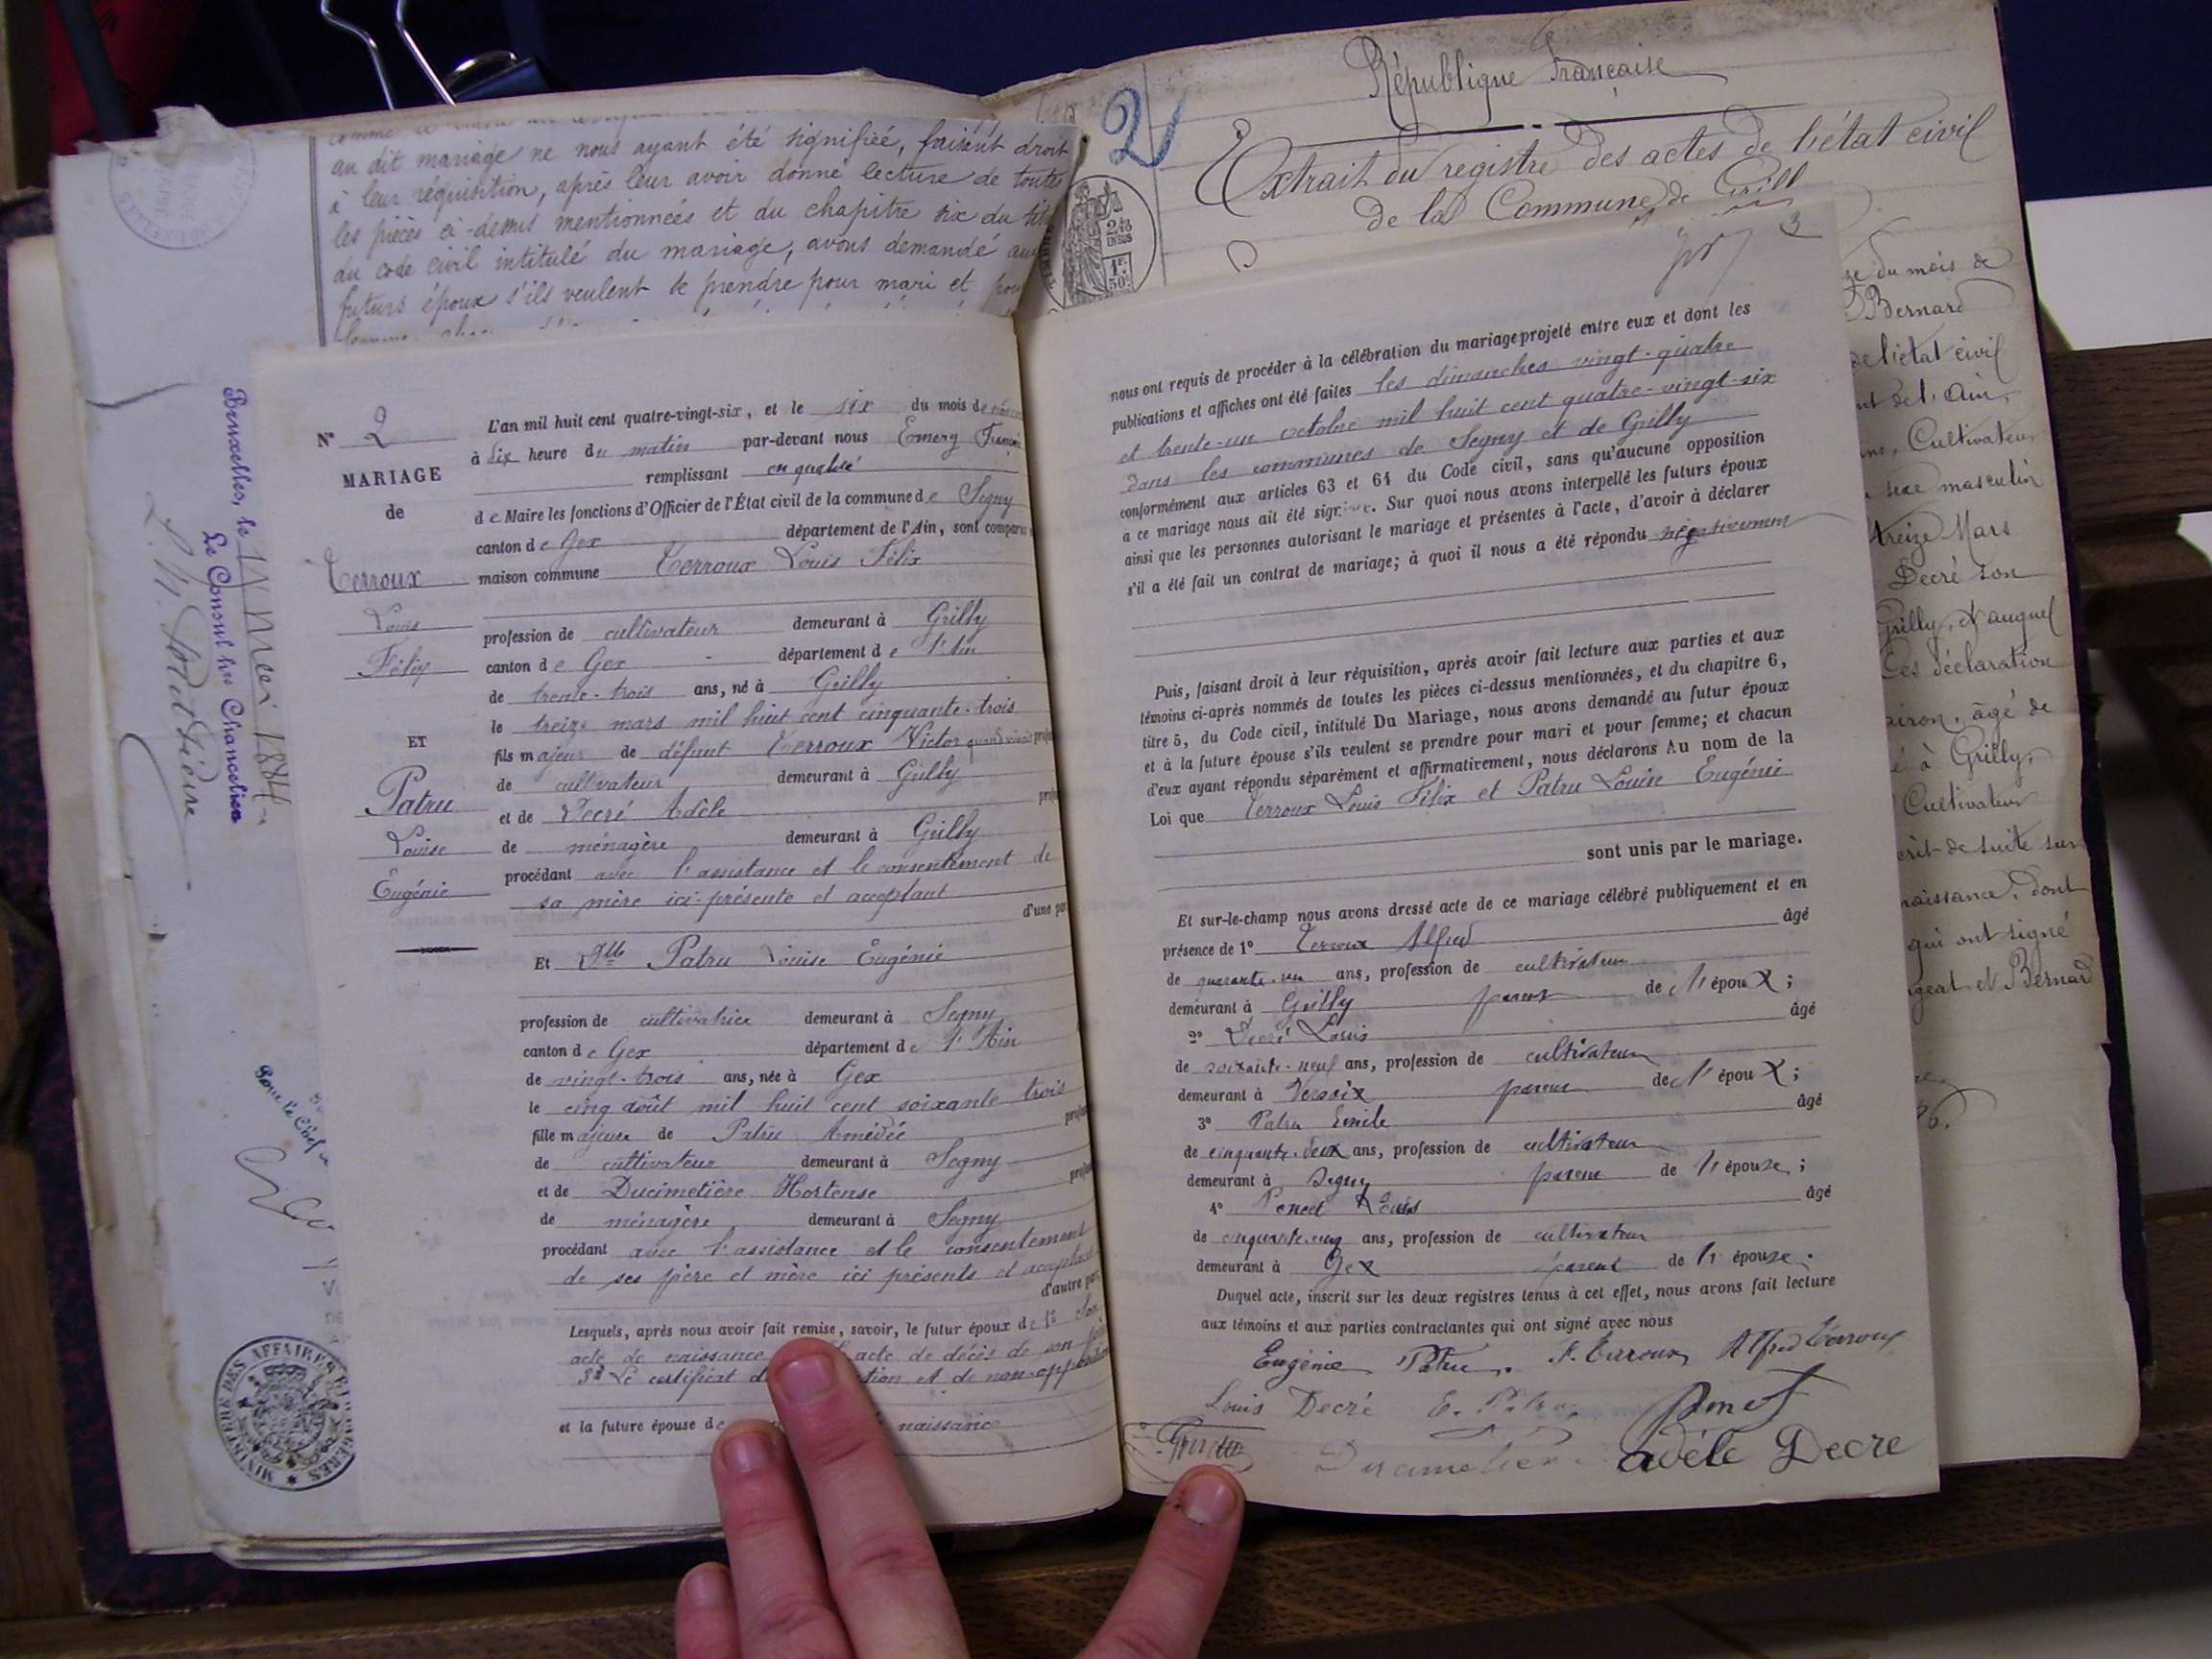 au dit mariage ne nous ayant été signifiée, faisant droit
à leur réquisition, après leur avoir donné lecture de toutes
les pièces ci-dessus mentionnées et du chapitre six du
du code civil intitulé du mariage, avons demandé aux
futurs époux s'ils veulent se prendre pour mari et pour
Bruxelles, le
Mai 1884
Le Consul
Chancelier
Pour le Chef
MINISTÈRE DES AFFAIRES ÉTRANGÈRES
N° 2
MARIAGE
de
Terroux
Louis
Félix
ET
Patru
Louise
Eugénie
L'an mil huit cent quatre-vingt-six, et le six du mois de
à dix heure du matin par-devant nous Emery François
remplissant en qualité
de Maire les fonctions d'Officier de l'État civil de la commune de Segny
canton de Gex département de l'Ain, sont comparu
maison commune Terroux Louis Félix
profession de cultivateur demeurant à Grilly
canton de Gex département de l'Ain
de trente-trois ans, né à Grilly
le treize mars mil huit cent cinquante-trois
fils majeur de défunt Terroux Victor quand vivait
de cultivateur demeurant à Grilly
et de Decré Adèle
de ménagère demeurant à Grilly
procédant avec l'assistance et le consentement de
sa mère ici présente et acceptant
d'une
Et Dlle Patru Louise Eugénie
profession de cultivatrice demeurant à Segny
canton de Gex département de l'Ain
de vingt-trois ans, née à Gex
le cinq août mil huit cent soixante trois
fille majeure de Patru Amédée
de cultivateur demeurant à Segny
et de Ducimetière Hortense
de ménagère demeurant à Segny
procédant avec l'assistance et le consentement
de ses père et mère ici présents et acceptant
d'autre
Lesquels, après nous avoir fait remise, savoir, le futur époux de 1° Son
acte de naissance acte de décès de son
3° Le certificat de et de non-opposition
et la future épouse de naissance
2
République Française
Extrait du registre des actes de l'état civil
de la Commune de Grilly
2/10
EN SUS
1F.
50c
3
nous ont requis de procéder à la célébration du mariage projeté entre eux et dont les
publications et affiches ont été faites les dimanches vingt-quatre
et trente-un octobre mil huit cent quatre-vingt-six
dans les communes de Segny et de Grilly
conformément aux articles 63 et 64 du Code civil, sans qu'aucune opposition
a ce mariage nous ait été signifiée. Sur quoi nous avons interpellé les futurs époux
ainsi que les personnes autorisant le mariage et présentes à l'acte, d'avoir à déclarer
s'il a été fait un contrat de mariage; à quoi il nous a été répondu négativement
Puis, faisant droit à leur réquisition, après avoir fait lecture aux parties et aux
témoins ci-après nommés de toutes les pièces ci-dessus mentionnées, et du chapitre 6,
titre 5, du Code civil, intitulé Du Mariage, nous avons demandé au futur époux
et à la future épouse s'ils veulent se prendre pour mari et pour femme; et chacun
d'eux ayant répondu séparément et affirmativement, nous déclarons Au nom de la
Loi que Terroux Louis Félix et Patru Louise Eugénie
sont unis par le mariage.
Et sur-le-champ nous avons dressé acte de ce mariage célébré publiquement et en
présence de 1° Terroux Alfred âgé
de quarante-un ans, profession de cultivateur
demeurant à Grilly parent de l'époux;
2° Decré Louis âgé
de soixante-neuf ans, profession de cultivateur
demeurant à Versoix parent de l'époux;
3° Patru Emile âgé
de cinquante-deux ans, profession de cultivateur
demeurant à Segny parent de l'épouse;
4° Louis âgé
de ans, profession de cultivateur
demeurant à Gex parent de l'épouse.
Duquel acte, inscrit sur les deux registres tenus à cet effet, nous avons fait lecture
aux témoins et aux parties contractantes qui ont signé avec nous
Eugénie Patru. F. Terroux Alfred Terroux
Louis Decré E. Patru
adèle Decre
du mois de
Bernard
de l'état civil
de l'Ain,
Cultivateur
sexe masculin
treize Mars
Decré son
Grilly, et auquel
Ces déclaration
âgé de
à Grilly,
Cultivateur
de suite sur
naissance, dont
qui ont signé
et Bernard